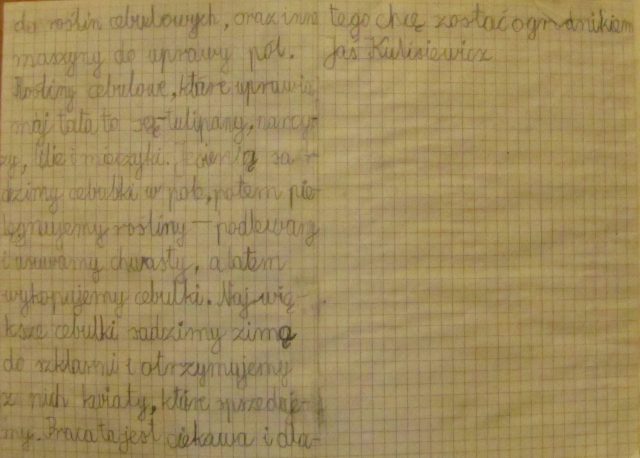 do roślin cebulowych, oraz inne
maszyny do uprawy pól.
Rośliny cebulowe, które uprawia
mój tata to są tulipany, narcy-
zy, lilie i mieczyki. Jesienią sa-
dzimy cebulki w pole, potem pie-
lęgnujemy rośliny — podlewamy
i usuwamy chwasty, a latem
wykopujemy cebulki. Najwię-
ksze cebulki sadzimy zimą
do szklarni i otrzymujemy
z nich kwiaty, które sprzedaje-
my. Praca ta jest ciekawa i dla-
tego chcę zostać ogrodnikiem
Jaś Kulisiewicz